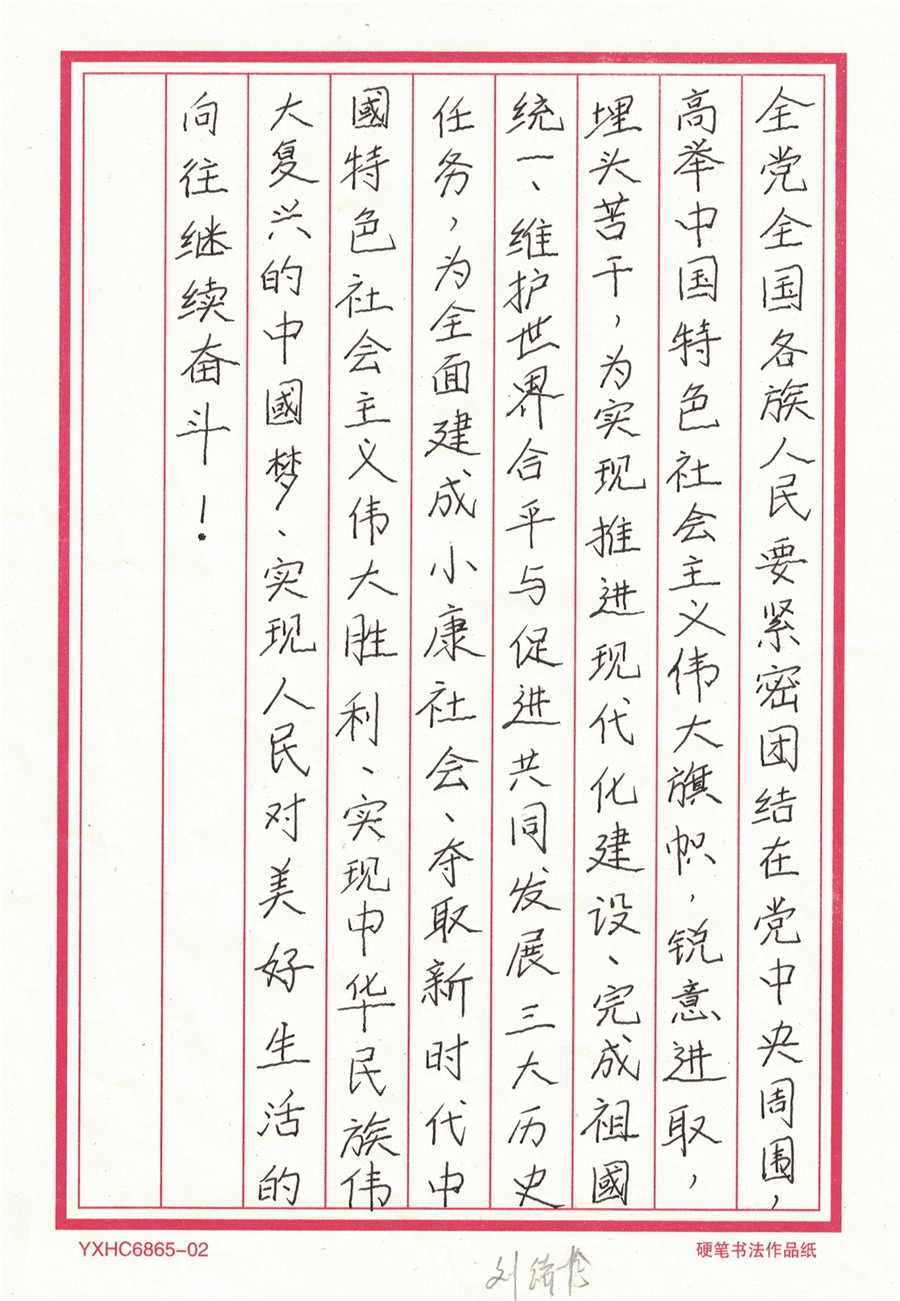 全党全国各族人民要紧密团结在党中央周围，
高举中国特色社会主义伟大旗帜，锐意进取，
埋头苦干，为实现推进现代化建设、完成祖國
统一、维护世界合平与促进共同发展三大历史
任务，为全面建成小康社会、夺取新时代中
國特色社会主义伟大胜利、实现中华民族伟
大复兴的中國梦、实现人民对美好生活的
向往继续奋斗！
YXHC6865-02
硬笔书法作品纸
刘